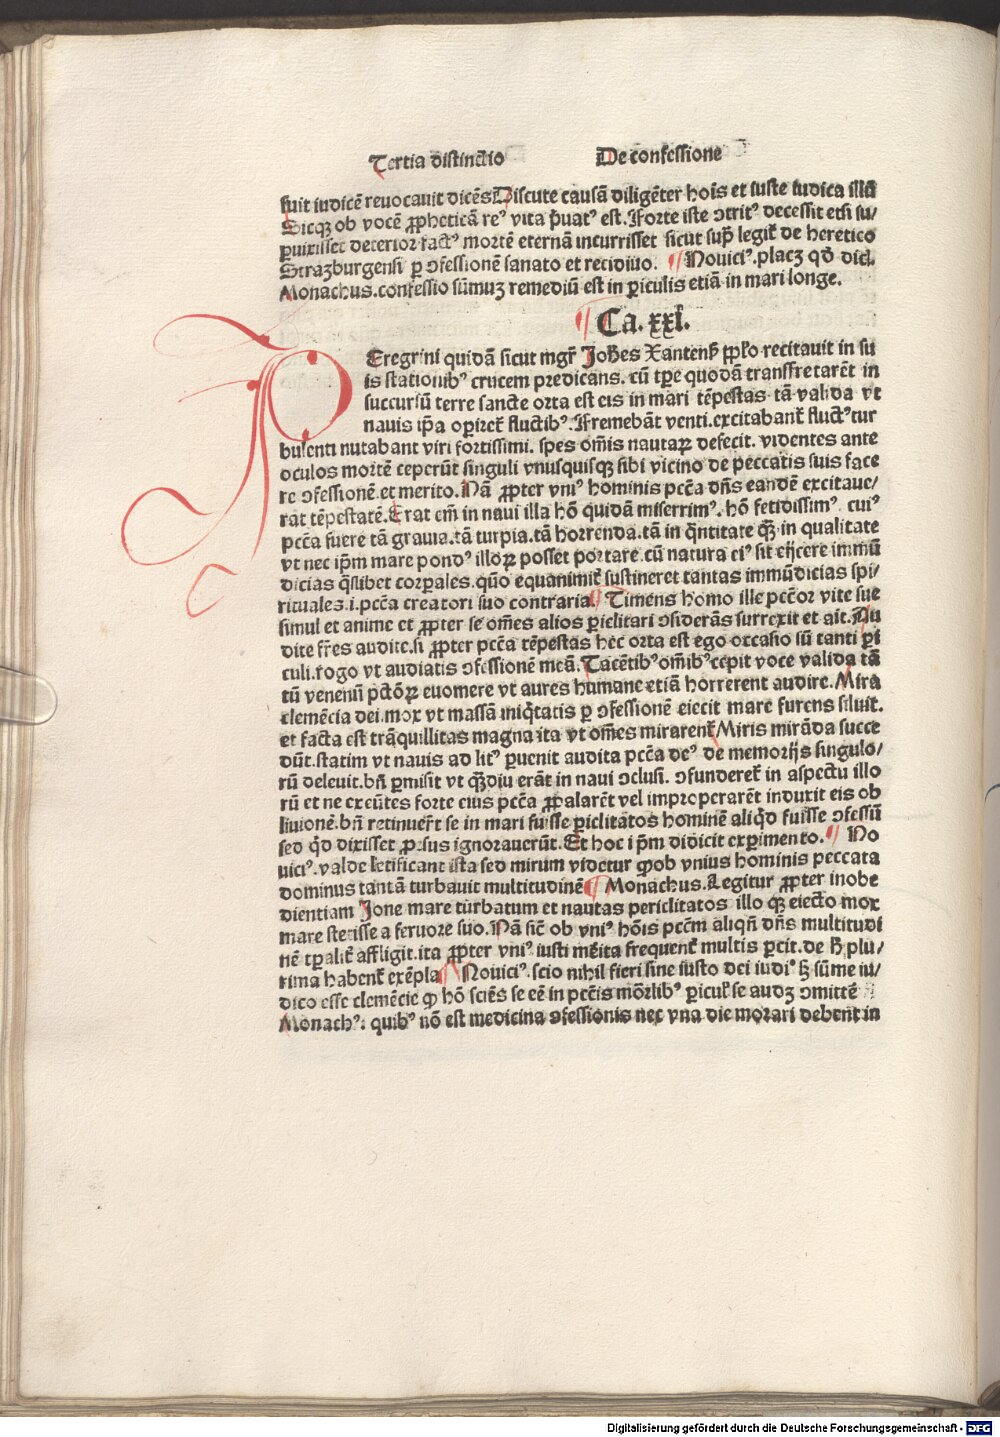 Tertia distinctio De confessione
fuit iudicē reuocauit dicēs Discute causā diligēter hoīs et iuste iudica illā
Sicqꝫ ob vocē ꝓpheticā reꝰ vita p̄uatꝰ est. Forte iste ↄtritꝰ decessit etsi su/
ꝑuixisset deterior factꝰ mortē eternā incurrisset sicut sup̄ legit̄ de heretico
Strazburgensi ꝑ ↄfessionē sanato et recidiuo. ¶ Nouiciꝰ. placꝫ qđ dic̄.
Monachus. confessio sūmuꝫ remediū est in ꝑiculis etiā in mari longe.
¶ Ca. xxi.
PEregrini quidā sicut mgr̄ Joħes Xantenẜ ꝓpl̄o recitauit in su
is stationibꝰ crucem predicans. cū tp̄e quodā transfretarēt in
succursū terre sancte orta est eis in mari tēpestas tā valida vt
nauis ip̄a oꝑiret̄ fluctibꝰ. Fremebāt venti. excitabant̄ fluctꝰ tur
bulenti nutabant viri fortissimi. spes om̄is nautaꝝ defecit. videntes ante
oculos mortē ceperūt singuli vnusquisqꝫ sibi vicino de peccatis suis face
re ↄfessionē. et merito. Nā ꝓpter vniꝰ hominis pctā dn̄s eandē excitaue/
rat tēpestatē. Erat em̄ in naui illa hō quidā miserrimꝰ. hō fetidissimꝰ. cuiꝰ
pctā fuere tā grauia. tā turpia. tā horrenda. tā in q̄ntitate qꝫ̄ in qualitate
vt nec ip̄m mare pondꝰ illoꝝ posset portare. cū natura eiꝰ sit eijcere immū
dicias q̄slibet corꝑales. quō equanimit̄ sustineret tantas immūdicias spi/
rituales. i. pctā creatori suo contraria. ¶ Timens homo ille pctōr vite sue
simul et anime et ꝓpter se om̄es alios ꝑiclitari ↄsiderās surrexit et ait. Au
dite fr̄es audite. si ꝓpter pctā tēpestas hec orta est ego occasio sū tanti ꝑi
culi. rogo vt audiatis ↄfessionē meā. Tacētibꝰ om̄ibꝰ cepit voce valida tā
tū venenū pctōꝝ euomere vt aures humane etiā horrerent audire. Mira
clemēcia dei. mox vt massā iniq̄tatis ꝑ ↄfessionē eiecit mare furens siluit.
et facta est trāquillitas magna ita vt om̄es mirarent̄ Miris mirāda succe
dūt. statim vt nauis ad litꝰ ꝑuenit audita pctā deꝰ de memorijs singulo/
rū deleuit. bn̄ ꝑmisit vt qꝫ̄diu erāt in naui ↄclusi. ↄfunderet̄ in aspectu illo
rū et ne exeūtes forte eius pctā ꝓpalarēt vel improperarēt induxit eis ob
liuionē. bn̄ retinuer̄t se in mari fuisse ꝑiclitatos hominē aliq̄d fuisse ↄfessū
sed q̄d dixisset ꝓrsus ignorauerūt. Et hoc ip̄m didicit exꝑimento. ¶ No
uiciꝰ. valde letificant ista sed mirum videtur ꝙ ob vnius hominis peccata
dominus tantā turbauit multitudinē ¶ Monachus. Legitur ꝓpter inobe
dientiam Jone mare turbatum et nautas periclitatos illo qꝫ eiecto mox
mare stetisse a feruore suo. Nā sic̄ ob vniꝰ hoīs pctm̄ aliqn̄ dn̄s multitudi
nē tꝑalit̄ affligit. ita ꝓpter vniꝰ iusti mērita frequent̄ multis ꝑcit. de ħ plu/
rima habent̄ exēpla ¶ Nouiciꝰ. scio nihil fieri sine iusto dei iudiº ẜꝫ sūme iu/
dico esse clemēcie ꝙ hō sciēs se eē in pctīs mōrlibꝰ ꝑicul̄ se audꝫ ↄmittē
Monachꝰ. quibꝰ nō est medicina ↄfessionis nec vna die morari debent in
Digitalisierung gefördert durch die Deutsche Forschungsgemeinschaft - DFG